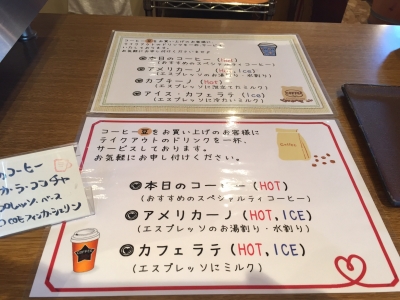 コーヒー豆をお買い上げのお客様に
テイクアウトのドリンクを一杯、サービス
いたしております。
お気軽にお申し付けくださいませ
本日のコーヒー (Hot)
(おすすめのスペシャルティコーヒー)
アメリカーノ (Hot, Ice)
(エスプレッソのお湯割り・水割り)
カプチーノ (Hot)
(エスプレッソに泡立てたミルク)
アイス・カフェラテ (Ice)
(エスプレッソに冷たいミルク)
コーヒー豆をお買い上げのお客様に
テイクアウトのドリンクを一杯、
サービスしております。
お気軽にお申し付けください。
Coffee
本日のコーヒー (HOT)
(おすすめのスペシャルティコーヒー)
アメリカーノ (HOT, ICE)
(エスプレッソのお湯割り・水割り)
カフェラテ (HOT, ICE)
(エスプレッソにミルク)
コーヒー